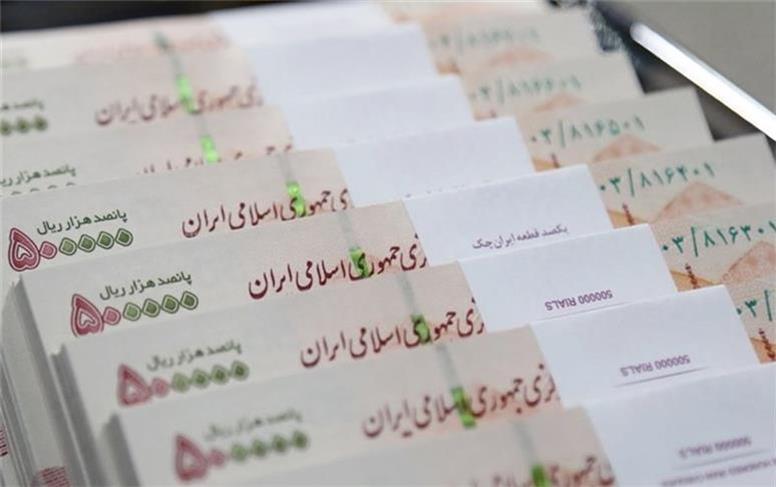 پانصد هزار ریال
جمهوری اسلامی ایران
۰۳/۸۱۶۶۰۱
پانصد هزار ریال
جمهوری اسلامی ایران
۰۳/۸۱۶۵۰۱
پانصد هزار ریال
۵۰۰۰۰۰
جمهوری اسلامی ایران
۰۳/۸۱۶۴۰۱
پانصد هزار ریال
۵۰۰۰۰۰
زی جمهوری اسلامی ایران
یکصد قطعه ایران چک
۰۳/۸۱۶۳۰۱
پانصد هزار ریال
۵۰۰۰۰۰
زی جمهوری اسلامی ایران
500000 RIALS
پانصد هزار ریال
۵۰۰۰۰۰
کزی جمهوری اسلامی ایران
500000 RIALS
500000 RIALS